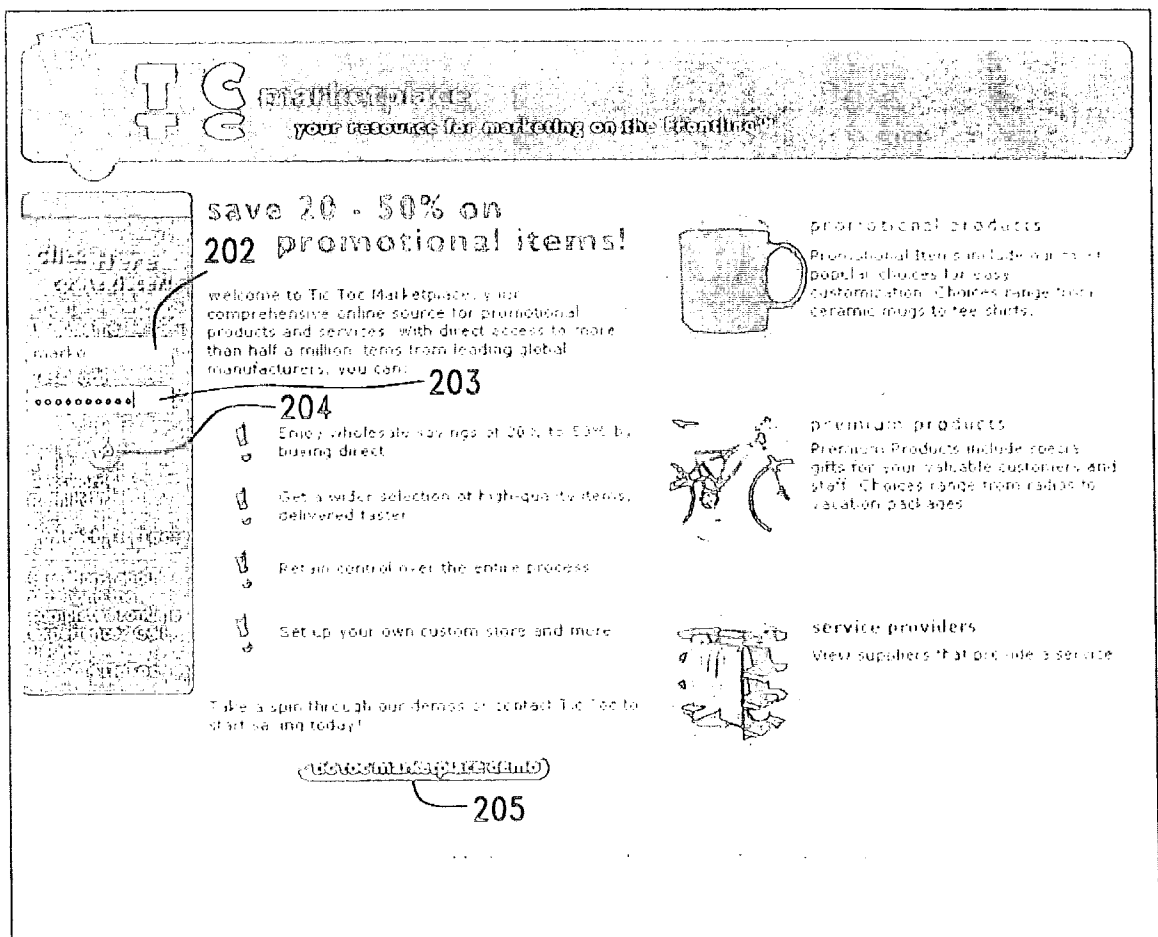 TC marketplace
your resource for marketing on the frontline
save 20 - 50% on
promotional items!
202
welcome to Tic Toc Marketplace, your
comprehensive online source for promotional
products and services. With direct access to more
than half a million items from leading global
manufacturers, you can:
203
204
Enjoy wholesale savings of 20% to 50% by
buying direct
Get a wider selection of high-quality items,
delivered faster
Retain control over the entire process
Set up your own custom store and more
Take a spin through our demos or contact Tic Toc to
start saving today!
tic toc marketplace demo
205
promotional products
Promotional Items include our most
popular choices for easy
customization. Choices range from
ceramic mugs to tee shirts.
premium products
Premium Products include special
gifts for your valuable customers and
staff. Choices range from radios to
vacation packages
service providers
View suppliers that provide a service